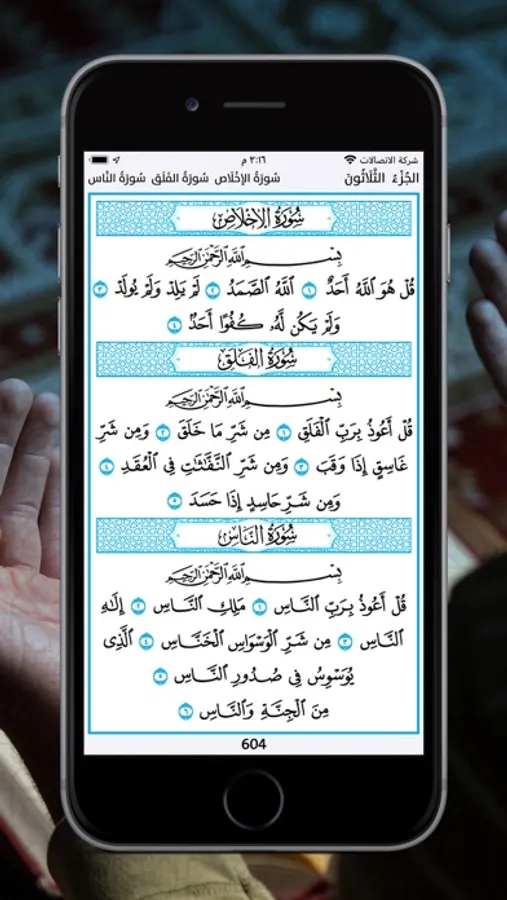 شركة الاتصالات ٣:١٦ م
الجُزْءُ الثَّلَاثُونَ سُورَةُ الإِخْلَاص سُورَةُ الفَلَق سُورَةُ النَّاس
سُورَةُ الإِخْلَاصِ
بِسْمِ ٱللَّهِ ٱلرَّحْمَٰنِ ٱلرَّحِيمِ
قُلْ هُوَ ٱللَّهُ أَحَدٌ ١ ٱللَّهُ ٱلصَّمَدُ ٢ لَمْ يَلِدْ وَلَمْ يُولَدْ ٣
وَلَمْ يَكُن لَّهُۥ كُفُوًا أَحَدٌۢ ٤
سُورَةُ الفَلَقِ
بِسْمِ ٱللَّهِ ٱلرَّحْمَٰنِ ٱلرَّحِيمِ
قُلْ أَعُوذُ بِرَبِّ ٱلْفَلَقِ ١ مِن شَرِّ مَا خَلَقَ ٢ وَمِن شَرِّ
غَاسِقٍ إِذَا وَقَبَ ٣ وَمِن شَرِّ ٱلنَّفَّٰثَٰتِ فِى ٱلْعُقَدِ ٤
وَمِن شَرِّ حَاسِدٍ إِذَا حَسَدَ ٥
سُورَةُ النَّاسِ
بِسْمِ ٱللَّهِ ٱلرَّحْمَٰنِ ٱلرَّحِيمِ
قُلْ أَعُوذُ بِرَبِّ ٱلنَّاسِ ١ مَلِكِ ٱلنَّاسِ ٢ إِلَٰهِ
ٱلنَّاسِ ٣ مِن شَرِّ ٱلْوَسْوَاسِ ٱلْخَنَّاسِ ٤ ٱلَّذِى
يُوَسْوِسُ فِى صُدُورِ ٱلنَّاسِ ٥
مِنَ ٱلْجِنَّةِ وَٱلنَّاسِ ٦
604